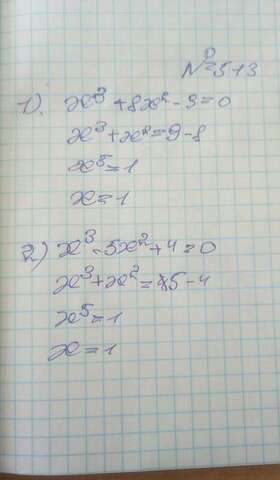 №513
1). x³ + 8x² - 9 = 0
x³ + x² = 9 - 8
x⁵ = 1
x = 1
2) x³ - 5x² + 4 = 0
x³ + x² = 5 - 4
x⁵ = 1
x = 1